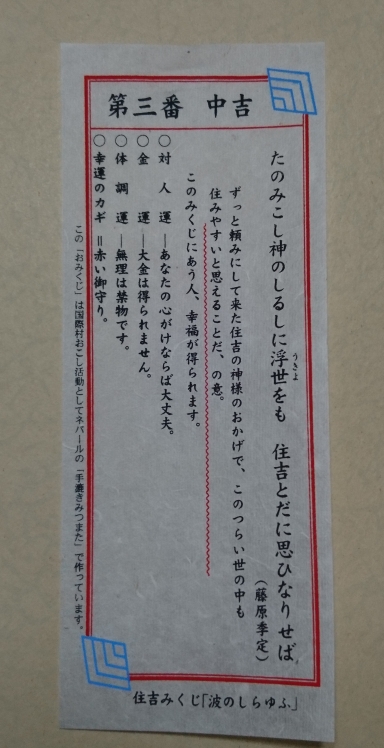 第三番　中吉
たのみこし神のしるしに浮世をも　住吉とだに思ひなりせば
うきよ
（藤原季定）
ずっと頼みにして来た住吉の神様のおかげで、このつらい世の中も
住みやすいと思えることだ、の意。
このみくじにあう人、幸福が得られます。
○対人運―あなたの心がけならば大丈夫。
○金運―大金は得られません。
○体調運―無理は禁物です。
○幸運のカギ＝赤い御守り。
この「おみくじ」は国際村おこし活動としてネパールの「手漉きみつまた」で作っています。
住吉みくじ「波のしらゆふ」